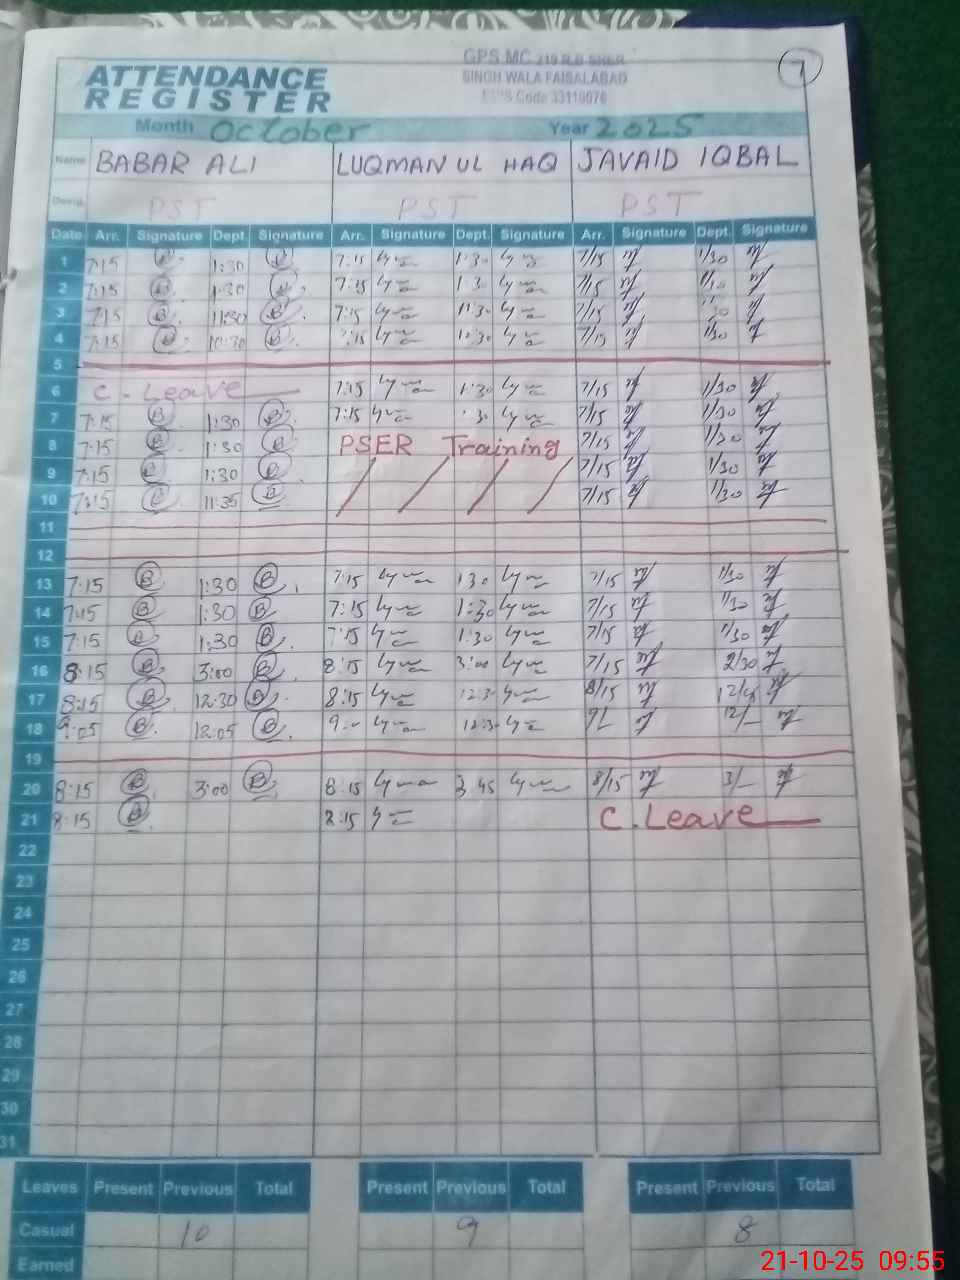 GPS MC 219 R.B SHER
SINGH WALA FAISALABAD
EMIS Code 33110076
7
ATTENDANCE
REGISTER
Month October Year 2025
Name BABAR ALI LUQMAN UL HAQ JAVAID IQBAL
Desig. PST PST PST
Date Arr. Signature Dept. Signature Arr. Signature Dept. Signature Arr. Signature Dept. Signature
1 7:15 B 1:30 B 7:15 1:30 7/15 1/30
2 7:15 B 1:30 B 7:15 1:30 7/15 1/30
3 7:15 B 11:30 B 7:15 11:30 7/15
4 7:15 B 10:30 B 7:15 7/15 1/30
5
6 C. Leave 7:15 1:30 7/15 1/30
7 7:15 B 1:30 B 7:15 7/15 1/30
8 7:15 B 1:30 B PSER Training 7/15 1/30
9 7:15 B 1:30 B 7/15 1/30
10 7:15 B 11:35 B 7/15 1/30
11
12
13 7:15 B 1:30 B 7:15 1 30 7/15 1/30
14 7:15 B 1:30 B 7:15 1:30 7/15 1/30
15 7:15 B 1:30 B 7:15 1:30 7/15 1/30
16 8:15 B 3:00 B 8:15 3:00 7/15 2/30
17 8:15 B 12:30 B 8:15 8/15
18 9:05 B 12:05 B 12/-
19
20 8:15 B 3:00 B 8:15 8/15 3/-
21 8:15 B 8:15 C. Leave
22
23
24
25
26
27
28
29
30
31
Leaves Present Previous Total Present Previous Total Present Previous Total
Casual 10 9 8
Earned
21-10-25 09:55